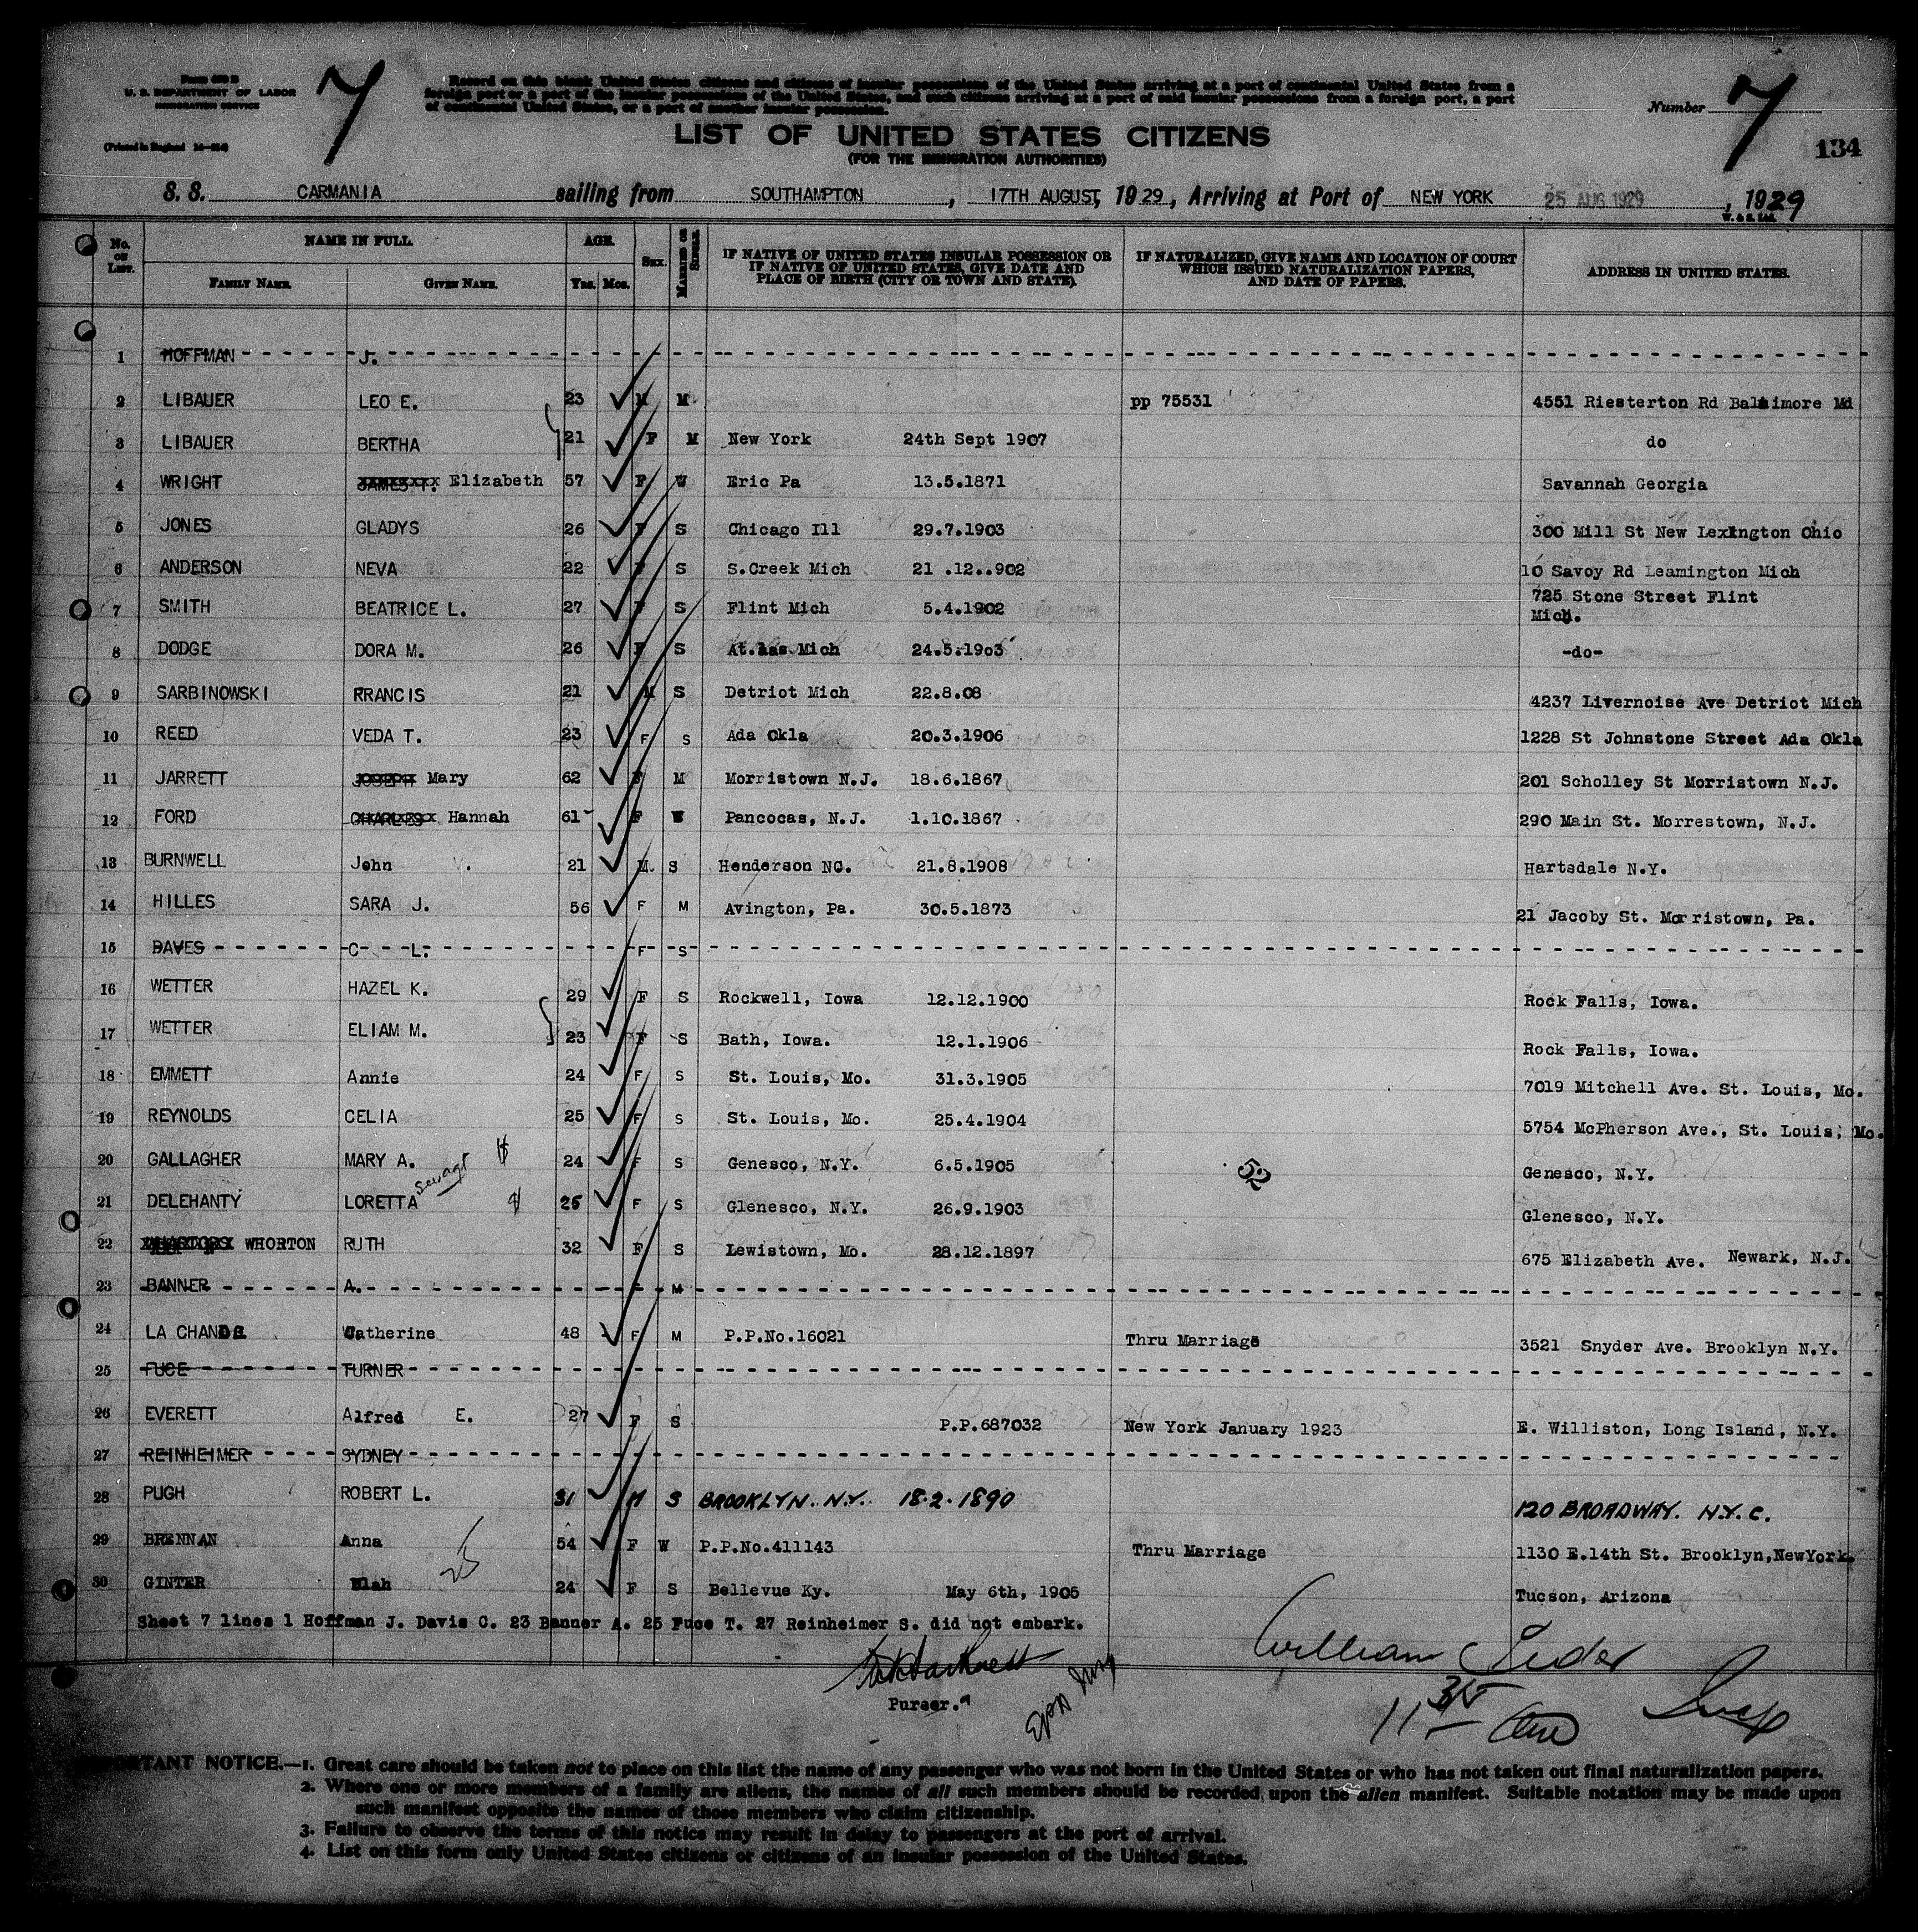 Form 630 B
U. S. DEPARTMENT OF LABOR
IMMIGRATION SERVICE
(Printed in England
7
Record on this blank United States citizens and citizens of insular possessions of the United States arriving at a port of continental United States from a
foreign port or a port of the insular possessions of the United States, and such citizens arriving at a port of said insular possessions from a foreign port, a port
of continental United States, or a port of another insular possession.
Number 7
134
LIST OF UNITED STATES CITIZENS
(FOR THE IMMIGRATION AUTHORITIES)
S. S. CARMANIA sailing from SOUTHAMPTON, 17TH AUGUST, 1929, Arriving at Port of NEW YORK 25 AUG 1929, 1929
No. on List. NAME IN FULL. AGE. Sex. Married or Single. IF NATIVE OF UNITED STATES INSULAR POSSESSION OR IF NATIVE OF UNITED STATES, GIVE DATE AND PLACE OF BIRTH (CITY OR TOWN AND STATE). IF NATURALIZED, GIVE NAME AND LOCATION OF COURT WHICH ISSUED NATURALIZATION PAPERS, AND DATE OF PAPERS. ADDRESS IN UNITED STATES.
Family Name. Given Name. Yrs. Mos.
1 HOFFMAN J.
2 LIBAUER LEO E. 23 M M pp 75531 4551 Riesterton Rd Baltimore Md
3 LIBAUER BERTHA 21 F M New York 24th Sept 1907 do
4 WRIGHT JAMES T. Elizabeth 57 F W Eric Pa 13.5.1871 Savannah Georgia
5 JONES GLADYS 26 F S Chicago Ill 29.7.1903 300 Mill St New Lexington Ohio
6 ANDERSON NEVA 22 F S S.Creek Mich 21 .12..902 10 Savoy Rd Leamington Mich
7 SMITH BEATRICE L. 27 F S Flint Mich 5.4.1902 725 Stone Street Flint
Mich.
8 DODGE DORA M. 26 F S At.las Mich 24.5.1903 -do-
9 SARBINOWSKI FRANCIS 21 M S Detriot Mich 22.8.08 4237 Livernoise Ave Detriot Mich
10 REED VEDA T. 23 F S Ada Okla 20.3.1906 1228 St Johnstone Street Ada Okla
11 JARRETT JOSEPH Mary 62 F M Morristown N.J. 18.6.1867 201 Scholley St Morristown N.J.
12 FORD CHARLES Hannah 61 F W Pancocas, N.J. 1.10.1867 290 Main St. Morrestown, N.J.
13 BURNWELL John 21 M. S Henderson NC. 21.8.1908 Hartsdale N.Y.
14 HILLES SARA J. 56 F M Avington, Pa. 30.5.1873 21 Jacoby St. Morristown, Pa.
15 DAVES C L. F S
16 WETTER HAZEL K. 29 F S Rockwell, Iowa 12.12.1900 Rock Falls, Iowa.
17 WETTER ELIAM M. 23 F S Bath, Iowa. 12.1.1906 Rock Falls, Iowa.
18 EMMETT Annie 24 F S St. Louis, Mo. 31.3.1905 7019 Mitchell Ave. St. Louis, Mo.
19 REYNOLDS CELIA 25 F S St. Louis, Mo. 25.4.1904 5754 McPherson Ave., St. Louis, Mo.
20 GALLAGHER MARY A. 24 F S Genesco, N.Y. 6.5.1905 52 Genesco, N.Y.
21 DELEHANTY LORETTA 25 F S Glenesco, N.Y. 26.9.1903 Glenesco, N.Y.
22 WHORTON RUTH 32 F S Lewistown, Mo. 28.12.1897 675 Elizabeth Ave. Newark, N.J.
23 BANNER A. F M
24 LA CHANCE Catherine 48 F M P.P.No.16021 Thru Marriage 3521 Snyder Ave. Brooklyn N.Y.
25 FUCE TURNER
26 EVERETT Alfred E. 27 F S P.P.687032 New York January 1923 E. Williston, Long Island, N.Y.
27 REINHEIMER SYDNEY
28 PUGH ROBERT L. 31 M S BROOKLYN. N.Y. 18.2.1890 120 BROADWAY. N.Y.C.
29 BRENNAN Anna 54 F W P.P.No.411143 Thru Marriage 1130 E.14th St. Brooklyn,NewYork.
30 GINTER Elah 24 F S Bellevue Ky. May 6th, 1905 Tucson, Arizona
Sheet 7 lines 1 Hoffman J. Davis C. 23 Banner A. 25 Fuce T. 27 Reinheimer S. did not embark.
Purser.
William
IMPORTANT NOTICE.—1. Great care should be taken not to place on this list the name of any passenger who was not born in the United States or who has not taken out final naturalization papers.
2. Where one or more members of a family are aliens, the names of all such members should be recorded upon the alien manifest. Suitable notation may be made upon
such manifest opposite the names of those members who claim citizenship.
3. Failure to observe the terms of this notice may result in delay to passengers at the port of arrival.
4. List on this form only United States citizens or citizens of an insular possession of the United States.